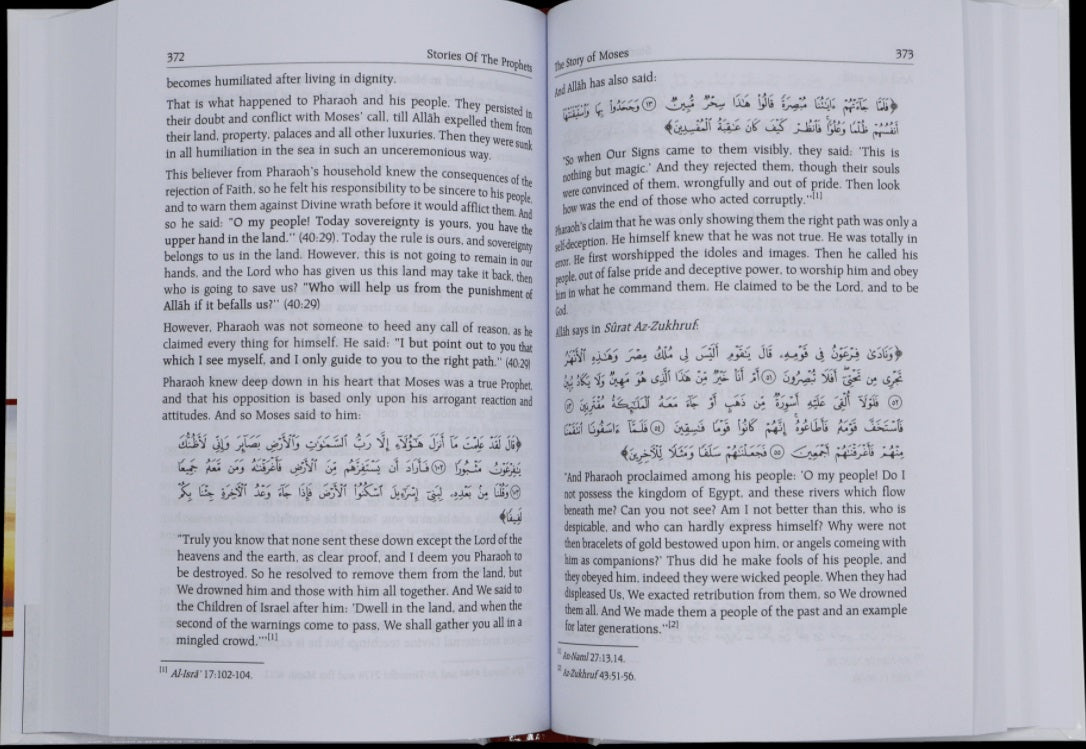 372 Stories Of The Prophets
becomes humiliated after living in dignity.
That is what happened to Pharaoh and his people. They persisted in
their doubt and conflict with Moses' call, till Allâh expelled them from
their land, property, palaces and all other luxuries. Then they were sunk
in all humiliation in the sea in such an unceremonious way.
This believer from Pharaoh's household knew the consequences of the
rejection of Faith, so he felt his responsibility to be sincere to his people,
and to warn them against Divine wrath before it would afflict them. And
so he said: "O my people! Today sovereignty is yours, you have the
upper hand in the land." (40:29). Today the rule is ours, and sovereignty
belongs to us in the land. However, this is not going to remain in our
hands, and the Lord who has given us this land may take it back, then
who is going to save us? "Who will help us from the punishment of
Allâh if it befalls us?" (40:29)
However, Pharaoh was not someone to heed any call of reason, as he
claimed every thing for himself. He said: "I but point out to you that
which I see myself, and I only guide to you to the right path." (40:29)
Pharaoh knew deep down in his heart that Moses was a true Prophet,
and that his opposition is based only upon his arrogant reaction and
attitudes. And so Moses said to him:
﴿قَالَ لَقَدْ عَلِمْتَ مَآ أَنزَلَ هَـٰٓؤُلَآءِ إِلَّا رَبُّ ٱلسَّمَـٰوَٰتِ وَٱلْأَرْضِ بَصَآئِرَ وَإِنِّى لَأَظُنُّكَ
يَـٰفِرْعَوْنُ مَثْبُورًا ﴿١٠٢﴾ فَأَرَادَ أَن يَسْتَفِزَّهُم مِّنَ ٱلْأَرْضِ فَأَغْرَقْنَـٰهُ وَمَن مَّعَهُ جَمِيعًا
﴿١٠٣﴾ وَقُلْنَا مِنۢ بَعْدِهِۦ لِبَنِىٓ إِسْرَٰٓءِيلَ ٱسْكُنُوا۟ ٱلْأَرْضَ فَإِذَا جَآءَ وَعْدُ ٱلْـَٔاخِرَةِ جِئْنَا بِكُمْ
لَفِيفًا﴾
"Truly you know that none sent these down except the Lord of the
heavens and the earth, as clear proof, and I deem you Pharaoh to
be destroyed. So he resolved to remove them from the land, but
We drowned him and those with him all together. And We said to
the Children of Israel after him: 'Dwell in the land, and when the
second of the warnings come to pass, We shall gather you all in a
mingled crowd.'"[1]
[1] Al-Isrâ' 17:102-104.
The Story of Moses 373
And Allâh has also said:
﴿فَلَمَّا جَآءَتْهُمْ ءَايَـٰتُنَا مُبْصِرَةً قَالُوا۟ هَـٰذَا سِحْرٌ مُّبِينٌ ﴿١٣﴾ وَجَحَدُوا۟ بِهَا وَٱسْتَيْقَنَتْهَآ
أَنفُسُهُمْ ظُلْمًا وَعُلُوًّا فَٱنظُرْ كَيْفَ كَانَ عَـٰقِبَةُ ٱلْمُفْسِدِينَ﴾
"So when Our Signs came to them visibly, they said: 'This is
nothing but magic.' And they rejected them, though their souls
were convinced of them, wrongfully and out of pride. Then look
how was the end of those who acted corruptly."[1]
Pharaoh's claim that he was only showing them the right path was only a
self-deception. He himself knew that he was not true. He was totally in
error. He first worshipped the idoles and images. Then he called his
people, out of false pride and deceptive power, to worship him and obey
him in what he command them. He claimed to be the Lord, and to be
God.
Allâh says in Sûrat Az-Zukhruf:
﴿وَنَادَىٰ فِرْعَوْنُ فِى قَوْمِهِۦ قَالَ يَـٰقَوْمِ أَلَيْسَ لِى مُلْكُ مِصْرَ وَهَـٰذِهِ ٱلْأَنْهَـٰرُ
تَجْرِى مِن تَحْتِىٓ أَفَلَا تُبْصِرُونَ ﴿٥١﴾ أَمْ أَنَا۠ خَيْرٌ مِّنْ هَـٰذَا ٱلَّذِى هُوَ مَهِينٌ وَلَا يَكَادُ يُبِينُ
﴿٥٢﴾ فَلَوْلَآ أُلْقِىَ عَلَيْهِ أَسْوِرَةٌ مِّن ذَهَبٍ أَوْ جَآءَ مَعَهُ ٱلْمَلَـٰٓئِكَةُ مُقْتَرِنِينَ ﴿٥٣﴾
فَٱسْتَخَفَّ قَوْمَهُۥ فَأَطَاعُوهُ إِنَّهُمْ كَانُوا۟ قَوْمًا فَـٰسِقِينَ ﴿٥٤﴾ فَلَمَّآ ءَاسَفُونَا ٱنتَقَمْنَا
مِنْهُمْ فَأَغْرَقْنَـٰهُمْ أَجْمَعِينَ ﴿٥٥﴾ فَجَعَلْنَـٰهُمْ سَلَفًا وَمَثَلًا لِّلْـَٔاخِرِينَ﴾
"And Pharaoh proclaimed among his people: 'O my people! Do I
not possess the kingdom of Egypt, and these rivers which flow
beneath me? Can you not see? Am I not better than this, who is
despicable, and who can hardly express himself? Why were not
then bracelets of gold bestowed upon him, or angels comeing with
him as companions?' Thus did he make fools of his people, and
they obeyed him, indeed they were wicked people. When they had
displeased Us, We exacted retribution from them, so We drowned
them all. And We made them a people of the past and an example
for later generations."[2]
[1] An-Naml 27:13,14.
[2] Az-Zukhruf 43:51-56.